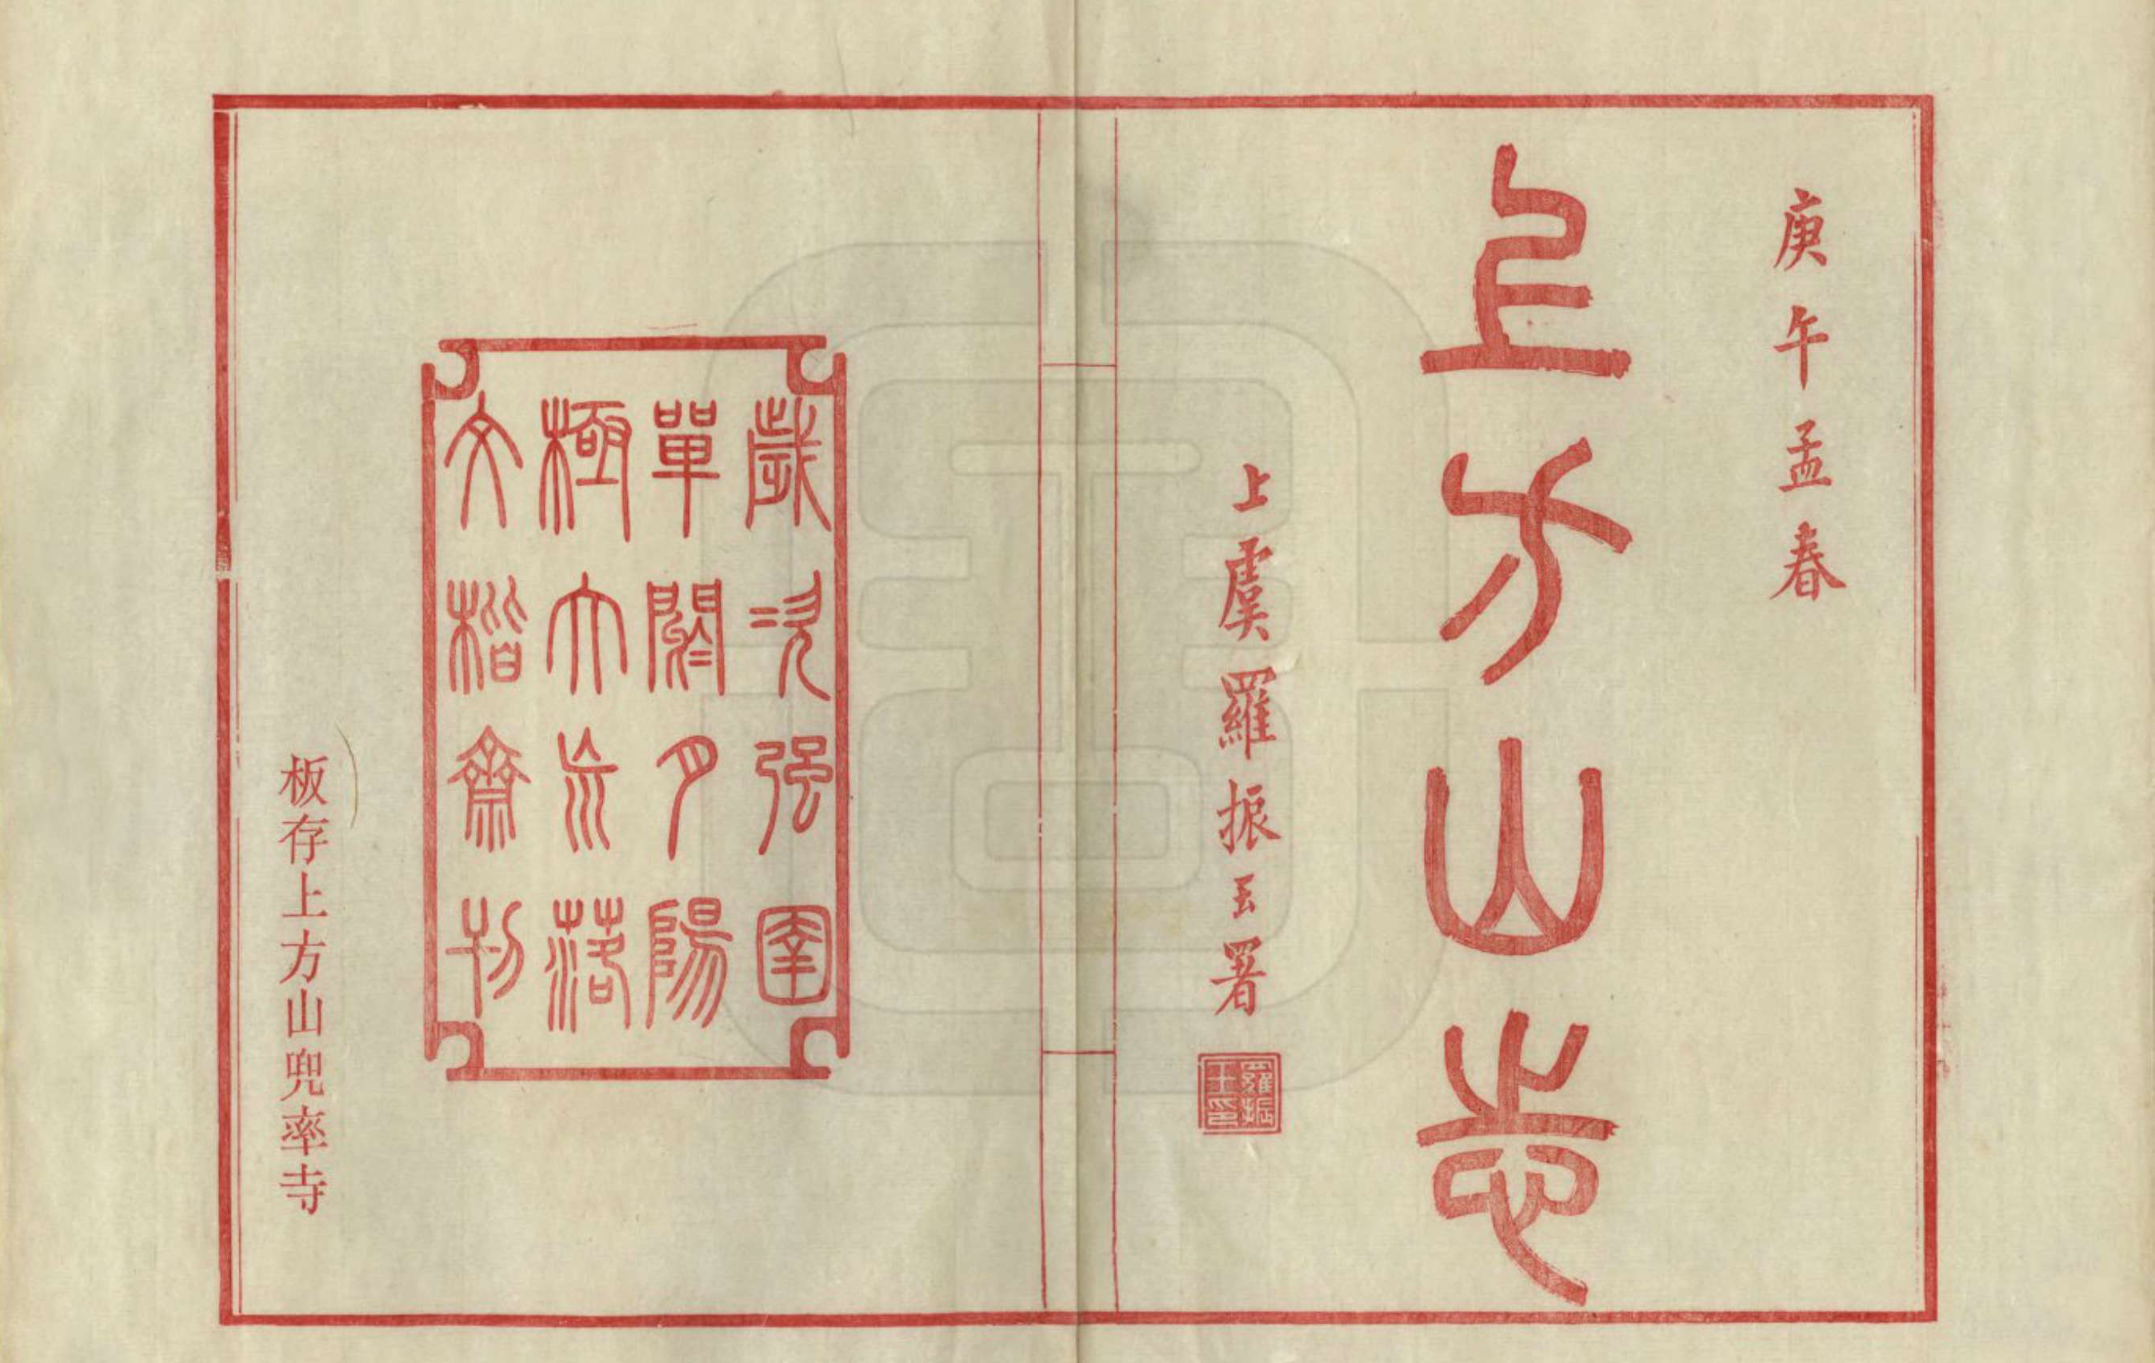 庚午孟春
上方山志
上虞羅振玉署
羅振玉印
歲次强圉
單閼月陽
極大巟落
文楷齋刊
板存上方山兜率寺